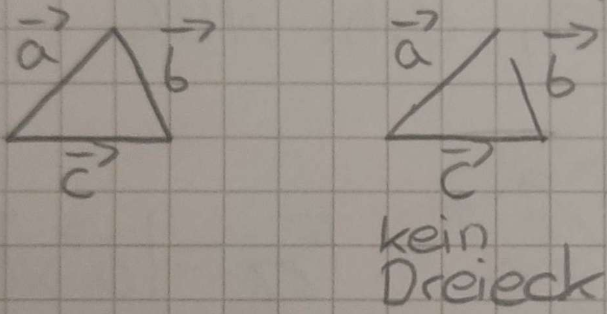 a⃗ b⃗ a⃗ b⃗
c⃗ c⃗
kein
Dreieck